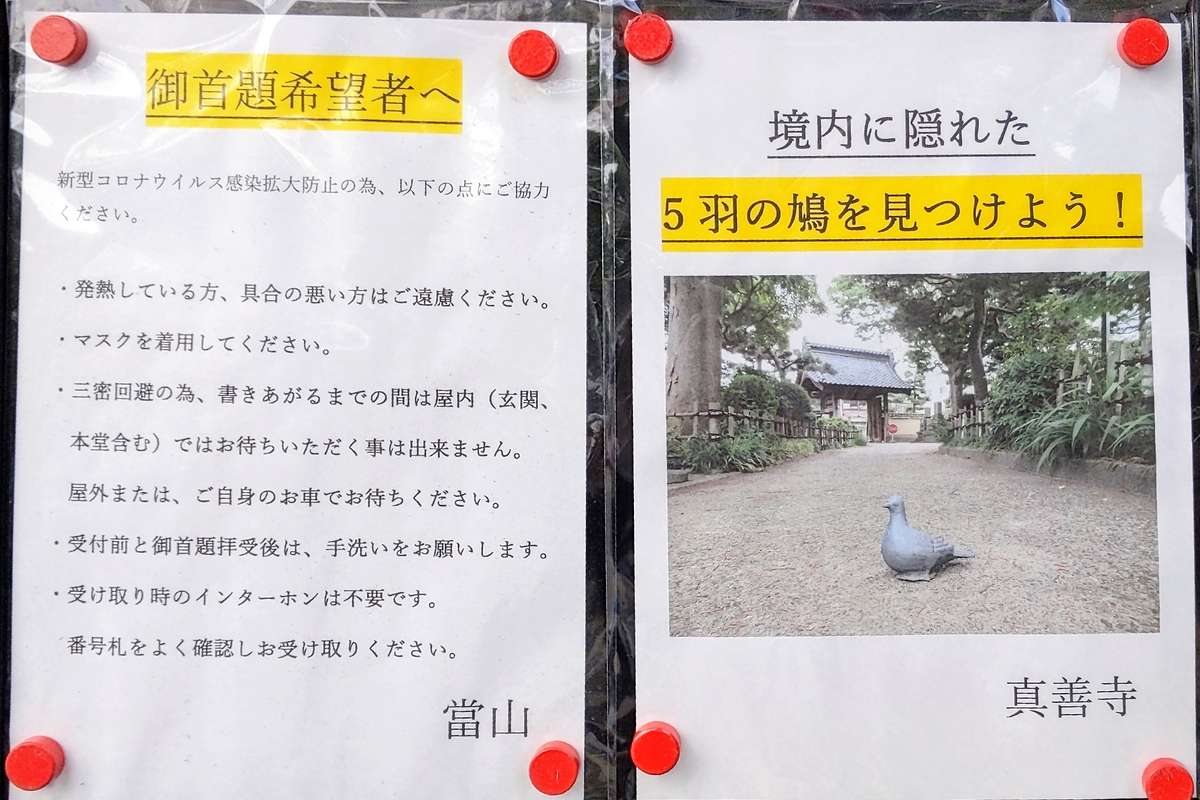 御首題希望者へ
新型コロナウイルス感染拡大防止の為、以下の点にご協力
ください。
・発熱している方、具合の悪い方はご遠慮ください。
・マスクを着用してください。
・三密回避の為、書きあがるまでの間は屋内（玄関、
本堂含む）ではお待ちいただく事は出来ません。
屋外または、ご自身のお車でお待ちください。
・受付前と御首題拝受後は、手洗いをお願いします。
・受け取り時のインターホンは不要です。
番号札をよく確認しお受け取りください。
當山
境内に隠れた
5羽の鳩を見つけよう！
真善寺